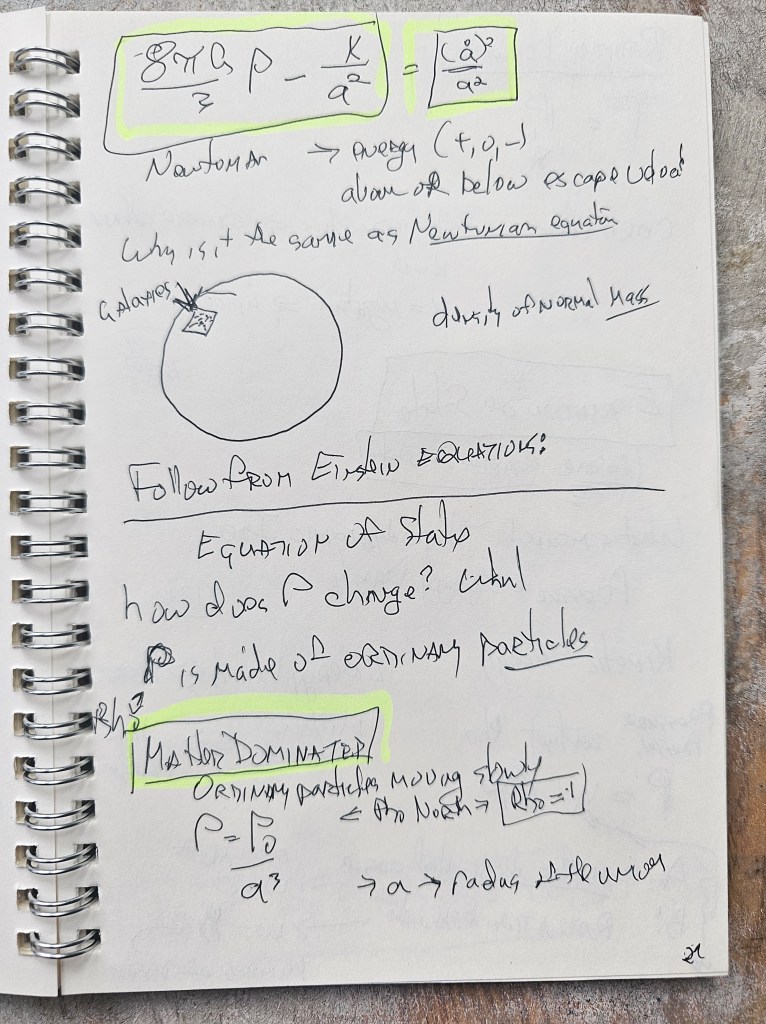 8πG/3 ρ - K/a² = (ȧ)²/a²
Newtonian → energy (+, 0, -)
above or below escape
Why is it the same as Newtonian equation
Galaxies
density of NORMAL MASS
Follow FROM Einstein EQUATIONS:
EQUATION OF State
how does ρ change?
ρ is made of ORDINARY particles
Rho
MATTER DOMINATED
ORDINARY particles moving slowly
ρ = ρ₀/a³
← Rho → Rho =
→ a → radius of the
21